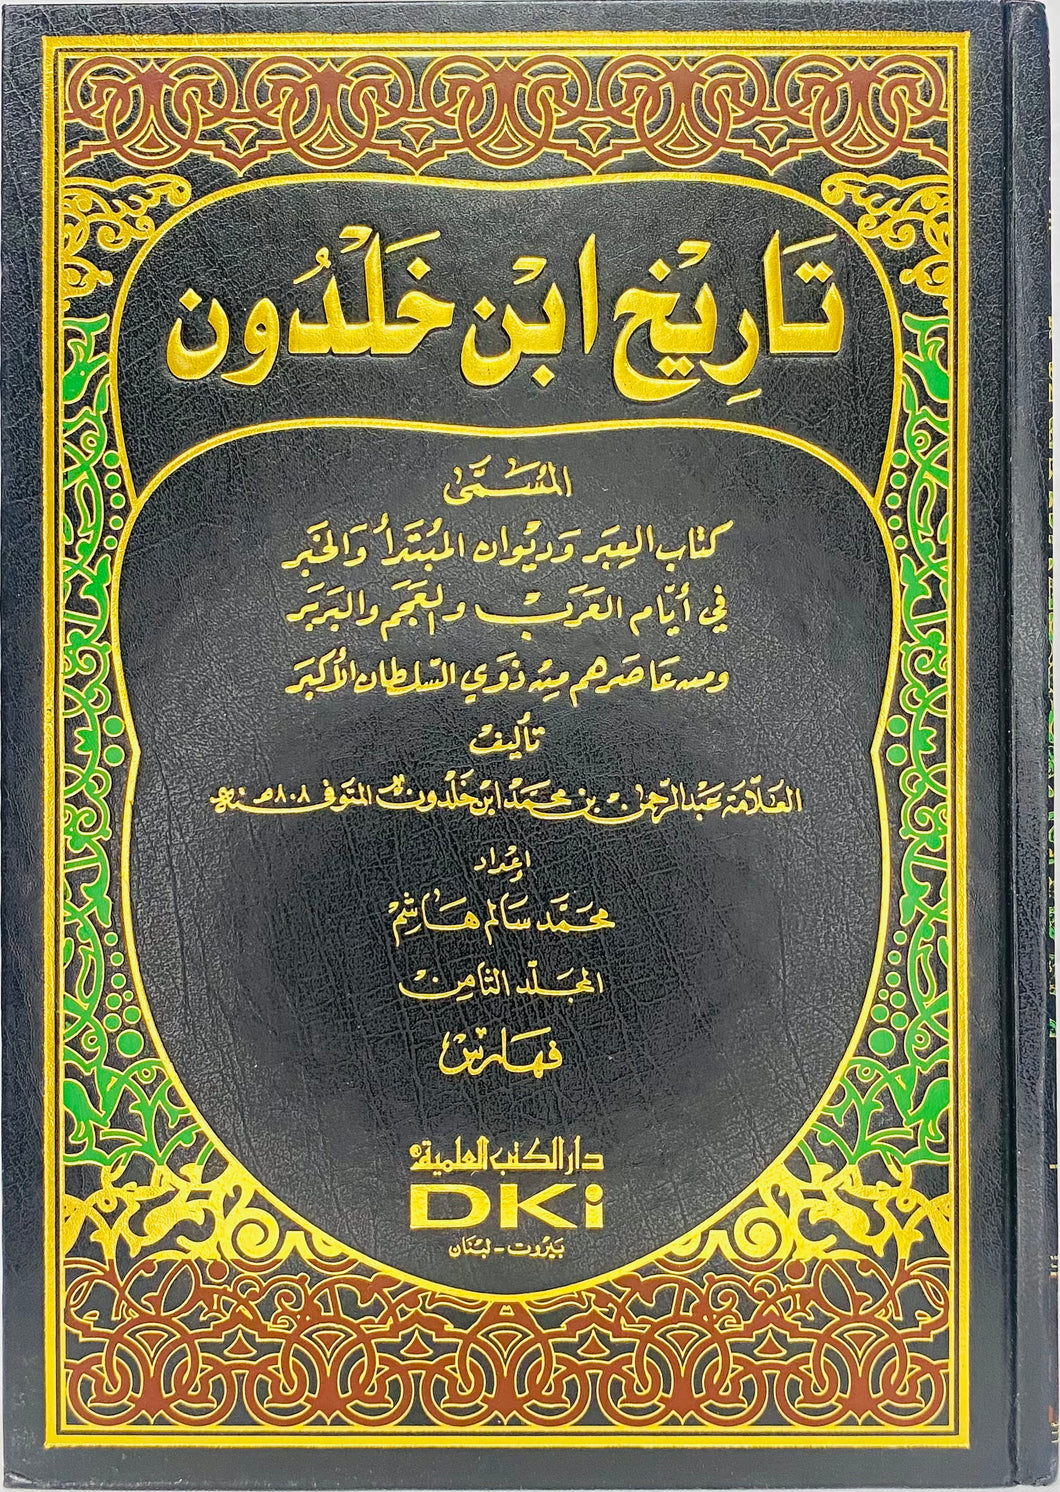 تَارِيْخ ابْن خَلْدُون
المُسَمَّى
كتاب العِبَر وَديْوان المُبْتَدأ وَالخَبَر
في أيّام العَرَبْ والعَجَم والبَربَر
ومن عَاصَرهم من ذَوي السّلطان الأكبَر
تأليف
العَلّامَة عَبْد الرّحمٰن بن محَمَّد ابن خَلْدون المتوفى ٨٠٨هـ
إعْداد
محَمَّد سَالم هَاشِم
المجَلّد الثامِن
فهَارسْ
دار الكتب العلمية
DKi
بَيْروت - لبْنَان